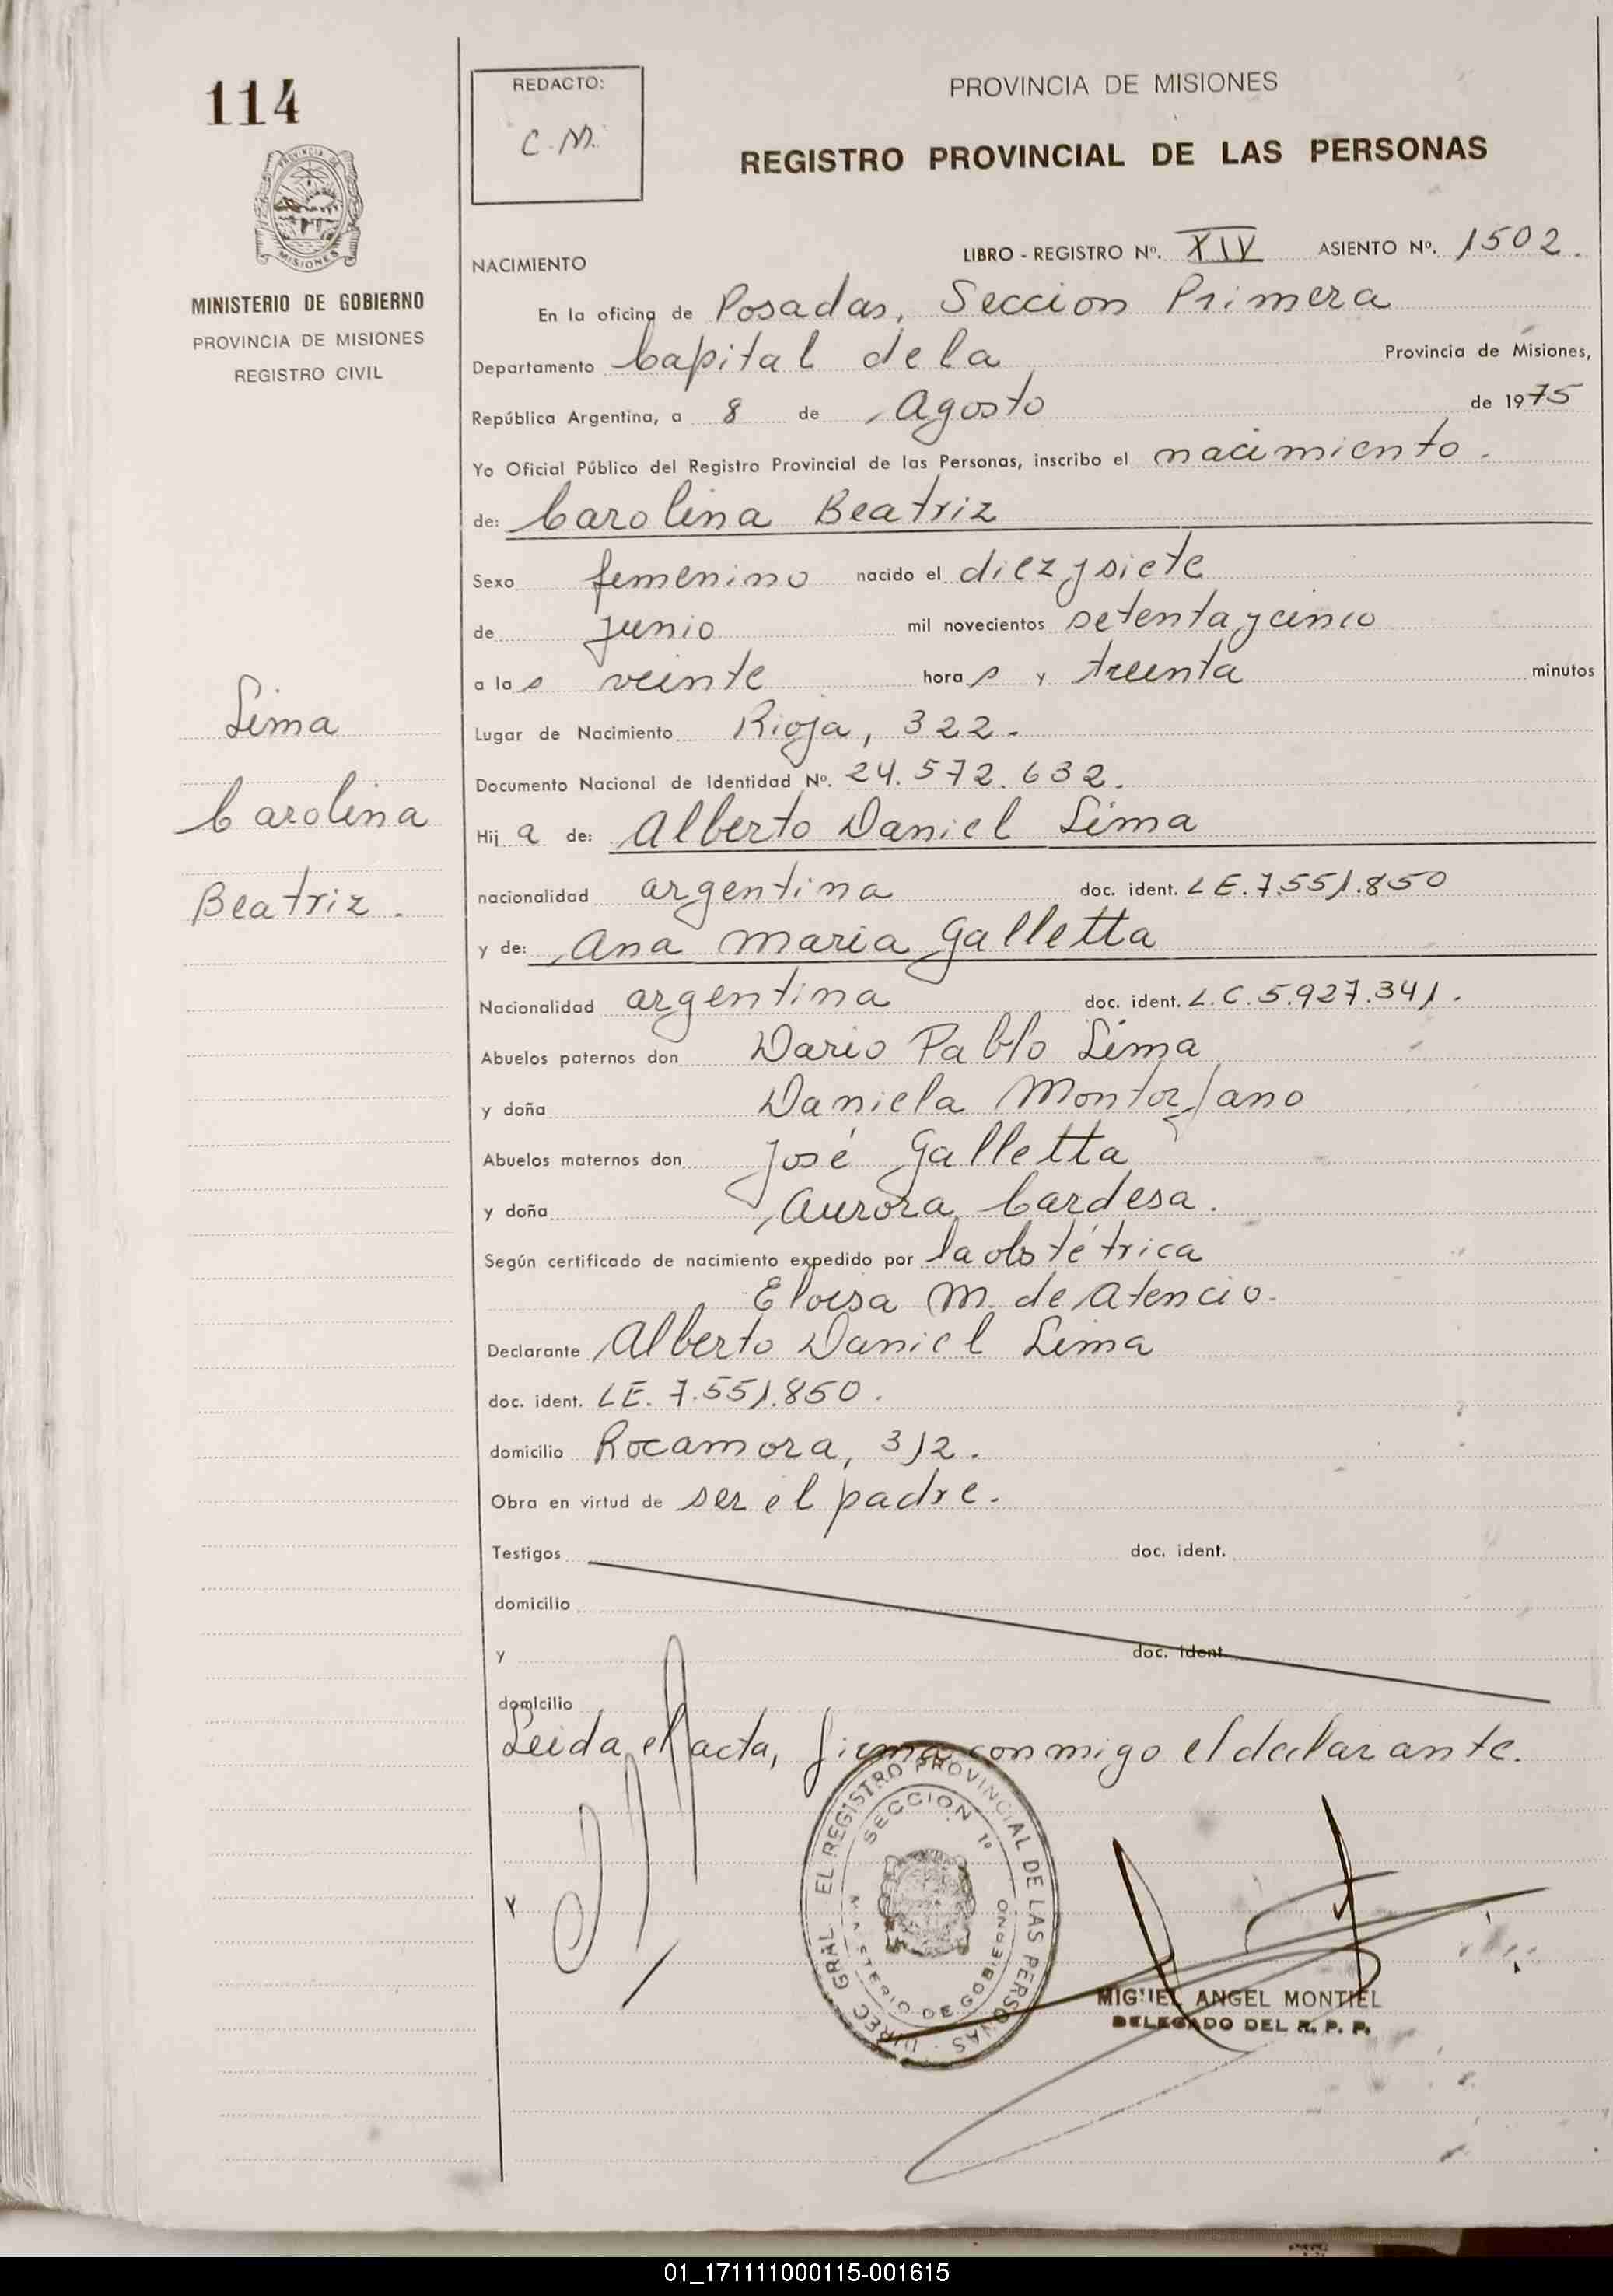 114
REDACTO:
C.M.
PROVINCIA DE MISIONES
REGISTRO PROVINCIAL DE LAS PERSONAS
PROVINCIA DE
MISIONES
MINISTERIO DE GOBIERNO
PROVINCIA DE MISIONES
REGISTRO CIVIL
NACIMIENTO LIBRO - REGISTRO Nº. XIV ASIENTO Nº. 1502.
En la oficina de Posadas, Seccion Primera
Departamento Capital de la Provincia de Misiones,
República Argentina, a 8 de Agosto de 1975
Yo Oficial Público del Registro Provincial de las Personas, inscribo el nacimiento.
de: Carolina Beatriz
Sexo femenino nacido el diez y siete
de junio mil novecientos setenta y cinco
a las veinte horas y treinta minutos
Lugar de Nacimiento Rioja, 322.
Documento Nacional de Identidad Nº. 24.572.632.
Hija de: Alberto Daniel Lima
nacionalidad argentina doc. ident. LE. 7.551.850
y de: Ana Maria Galletta
Nacionalidad argentina doc. ident. L.C. 5.927.341.
Abuelos paternos don Dario Pablo Lima
y doña Daniela Montorfano
Abuelos maternos don José Galletta
y doña Aurora Cardesa.
Según certificado de nacimiento expedido por la obstétrica
Eloisa M. de Atencio.
Declarante Alberto Daniel Lima
doc. ident. LE. 7.551.850.
domicilio Rocamora, 312.
Obra en virtud de ser el padre.
Testigos doc. ident.
domicilio
y doc. ident.
domicilio
Leida el acta, firma conmigo el declarante.
Lima
Carolina
Beatriz.
DIREC. GRAL. EL REGISTRO PROVINCIAL DE LAS PERSONAS
SECCION 1º
MINISTERIO DE GOBIERNO
MIGUEL ANGEL MONTIEL
DELEGADO DEL R. P. P.
01_171111000115-001615